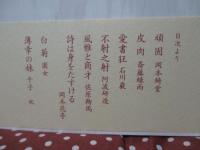 目次より
頑固 岡本綺堂
皮肉 斎藤緑雨
愛書狂 石川巌
不射之射 阿波研造
風雅と商才 佐原鞠塢
詩は身をたすける 岡本花亭
白菊 園女
薄幸の妹 千子